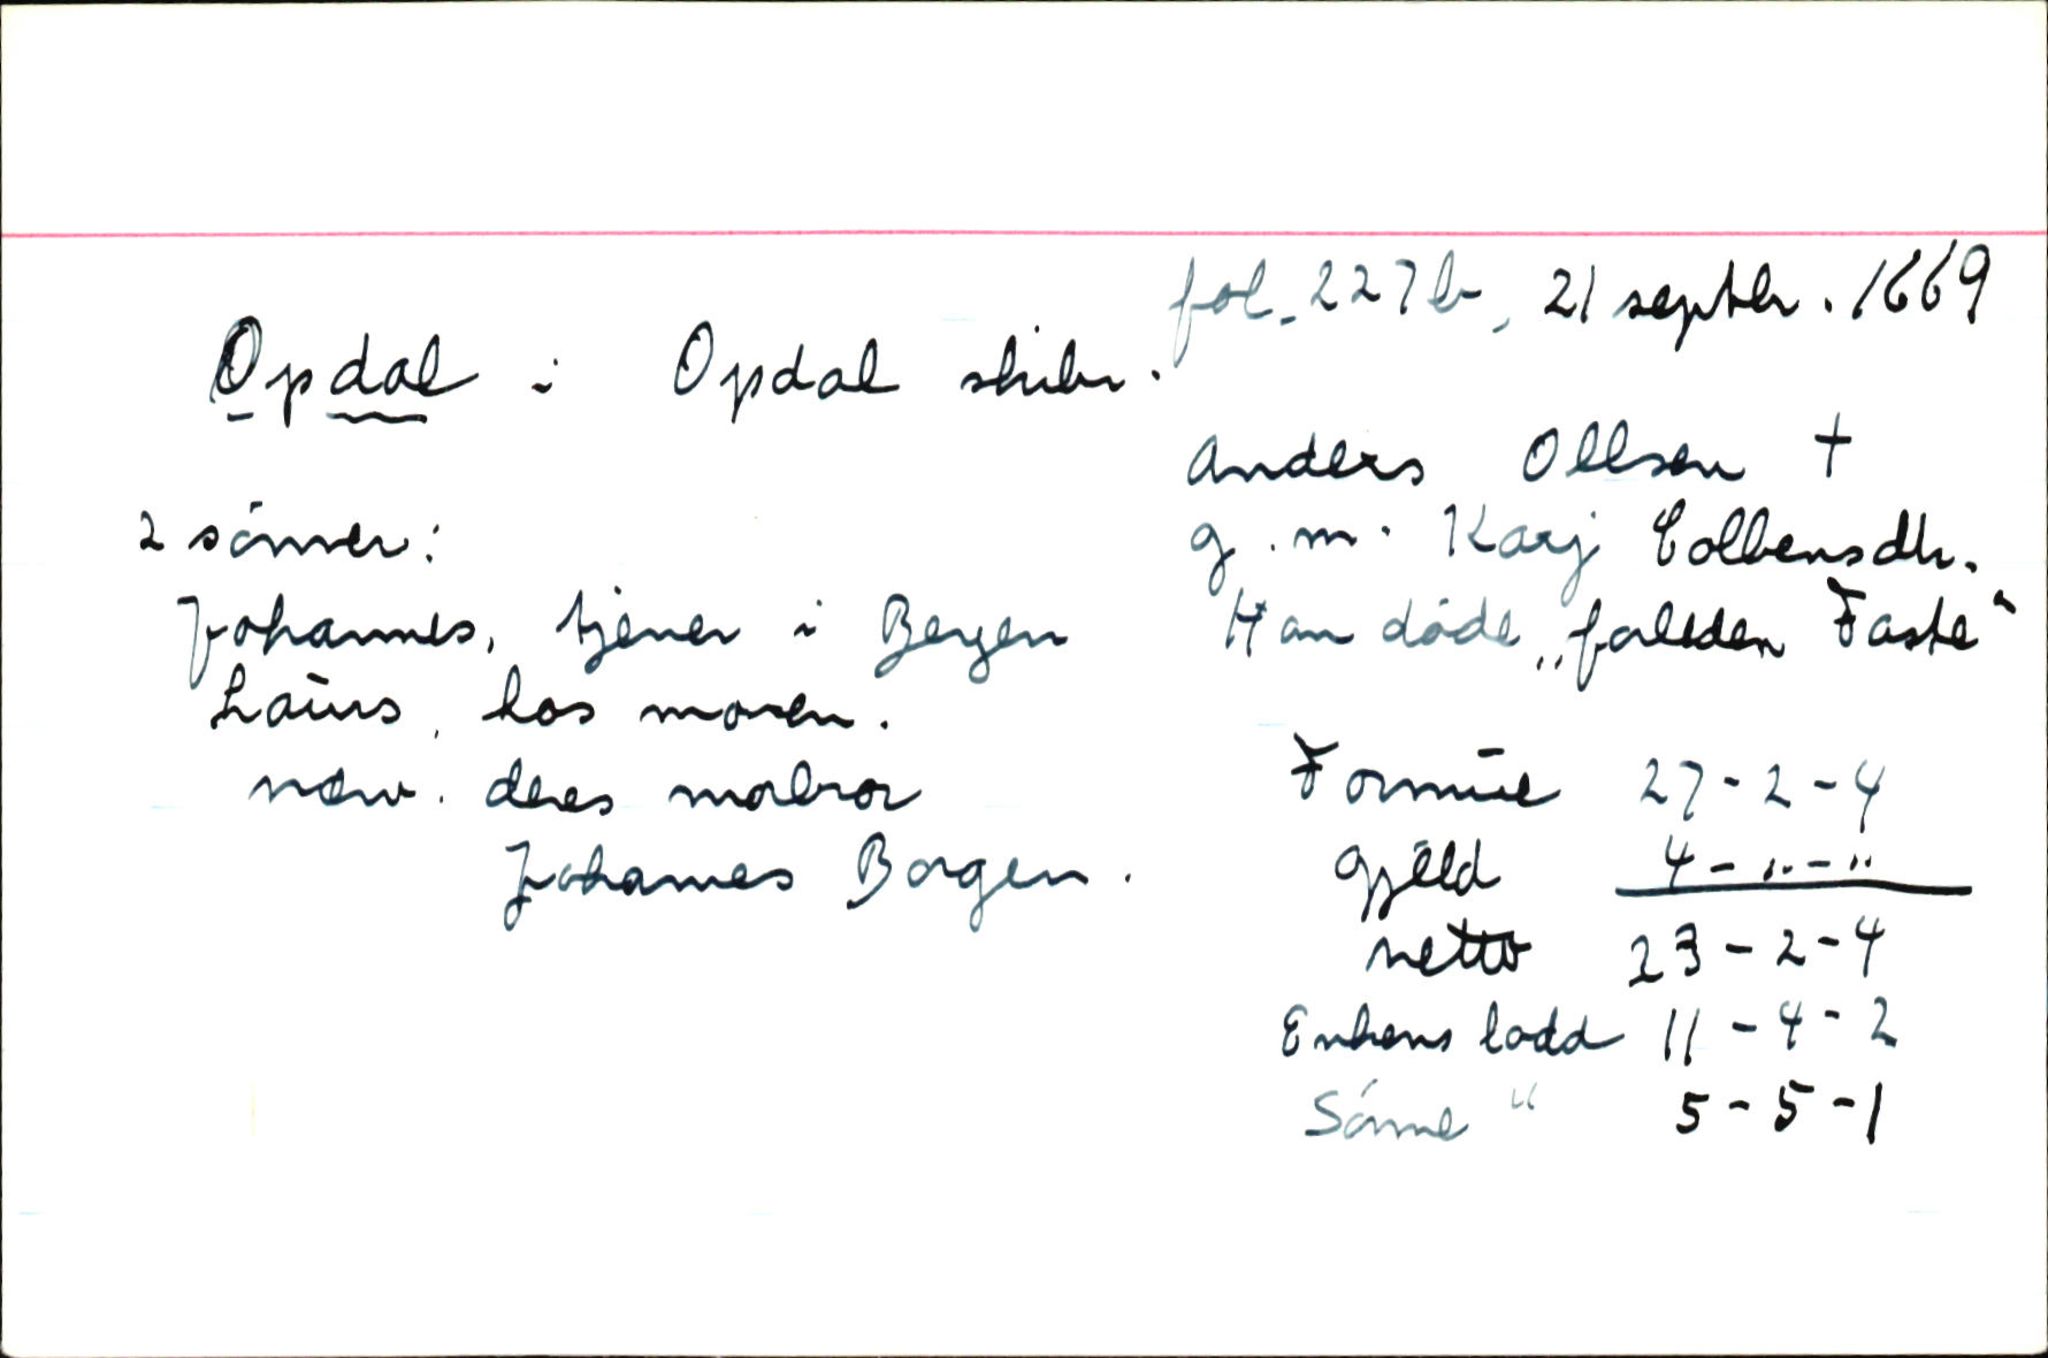 fol. 227b, 21 septbr. 1669
Opdal i Opdal skibr.
Anders Ollsen †
g. m. Karj Colbensdtr.
Han døde „falleden Faste“
2 sønner:
Johannes, tjener i Bergen
Laurs, hos moren.
næv. deres morbror
Johannes Borgen.
Formue 27-2-4
Gjæld 4-„-„
netto 23-2-4
Enkens lodd 11-4-2
Sønne " 5-5-1